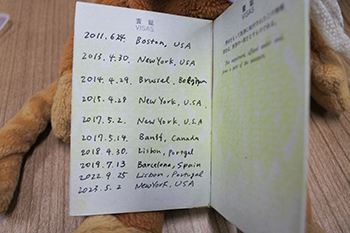 査証
VISAS
2011.6.24. Boston, USA
2013.4.30. New York, USA
2014.4.29. Brussel, Belgium
2015.4.28 New York, U.S.A.
2017.5.2. New York, U.S.A
2017.5.14. Banff, Canada
2018.4.30. Lisbon, Portgal
2019.7.13 Barcelona, Spain
2022 9 25 Lisbon, Portugal
2023.5.2 New York, U.S.A
査証
VISAS